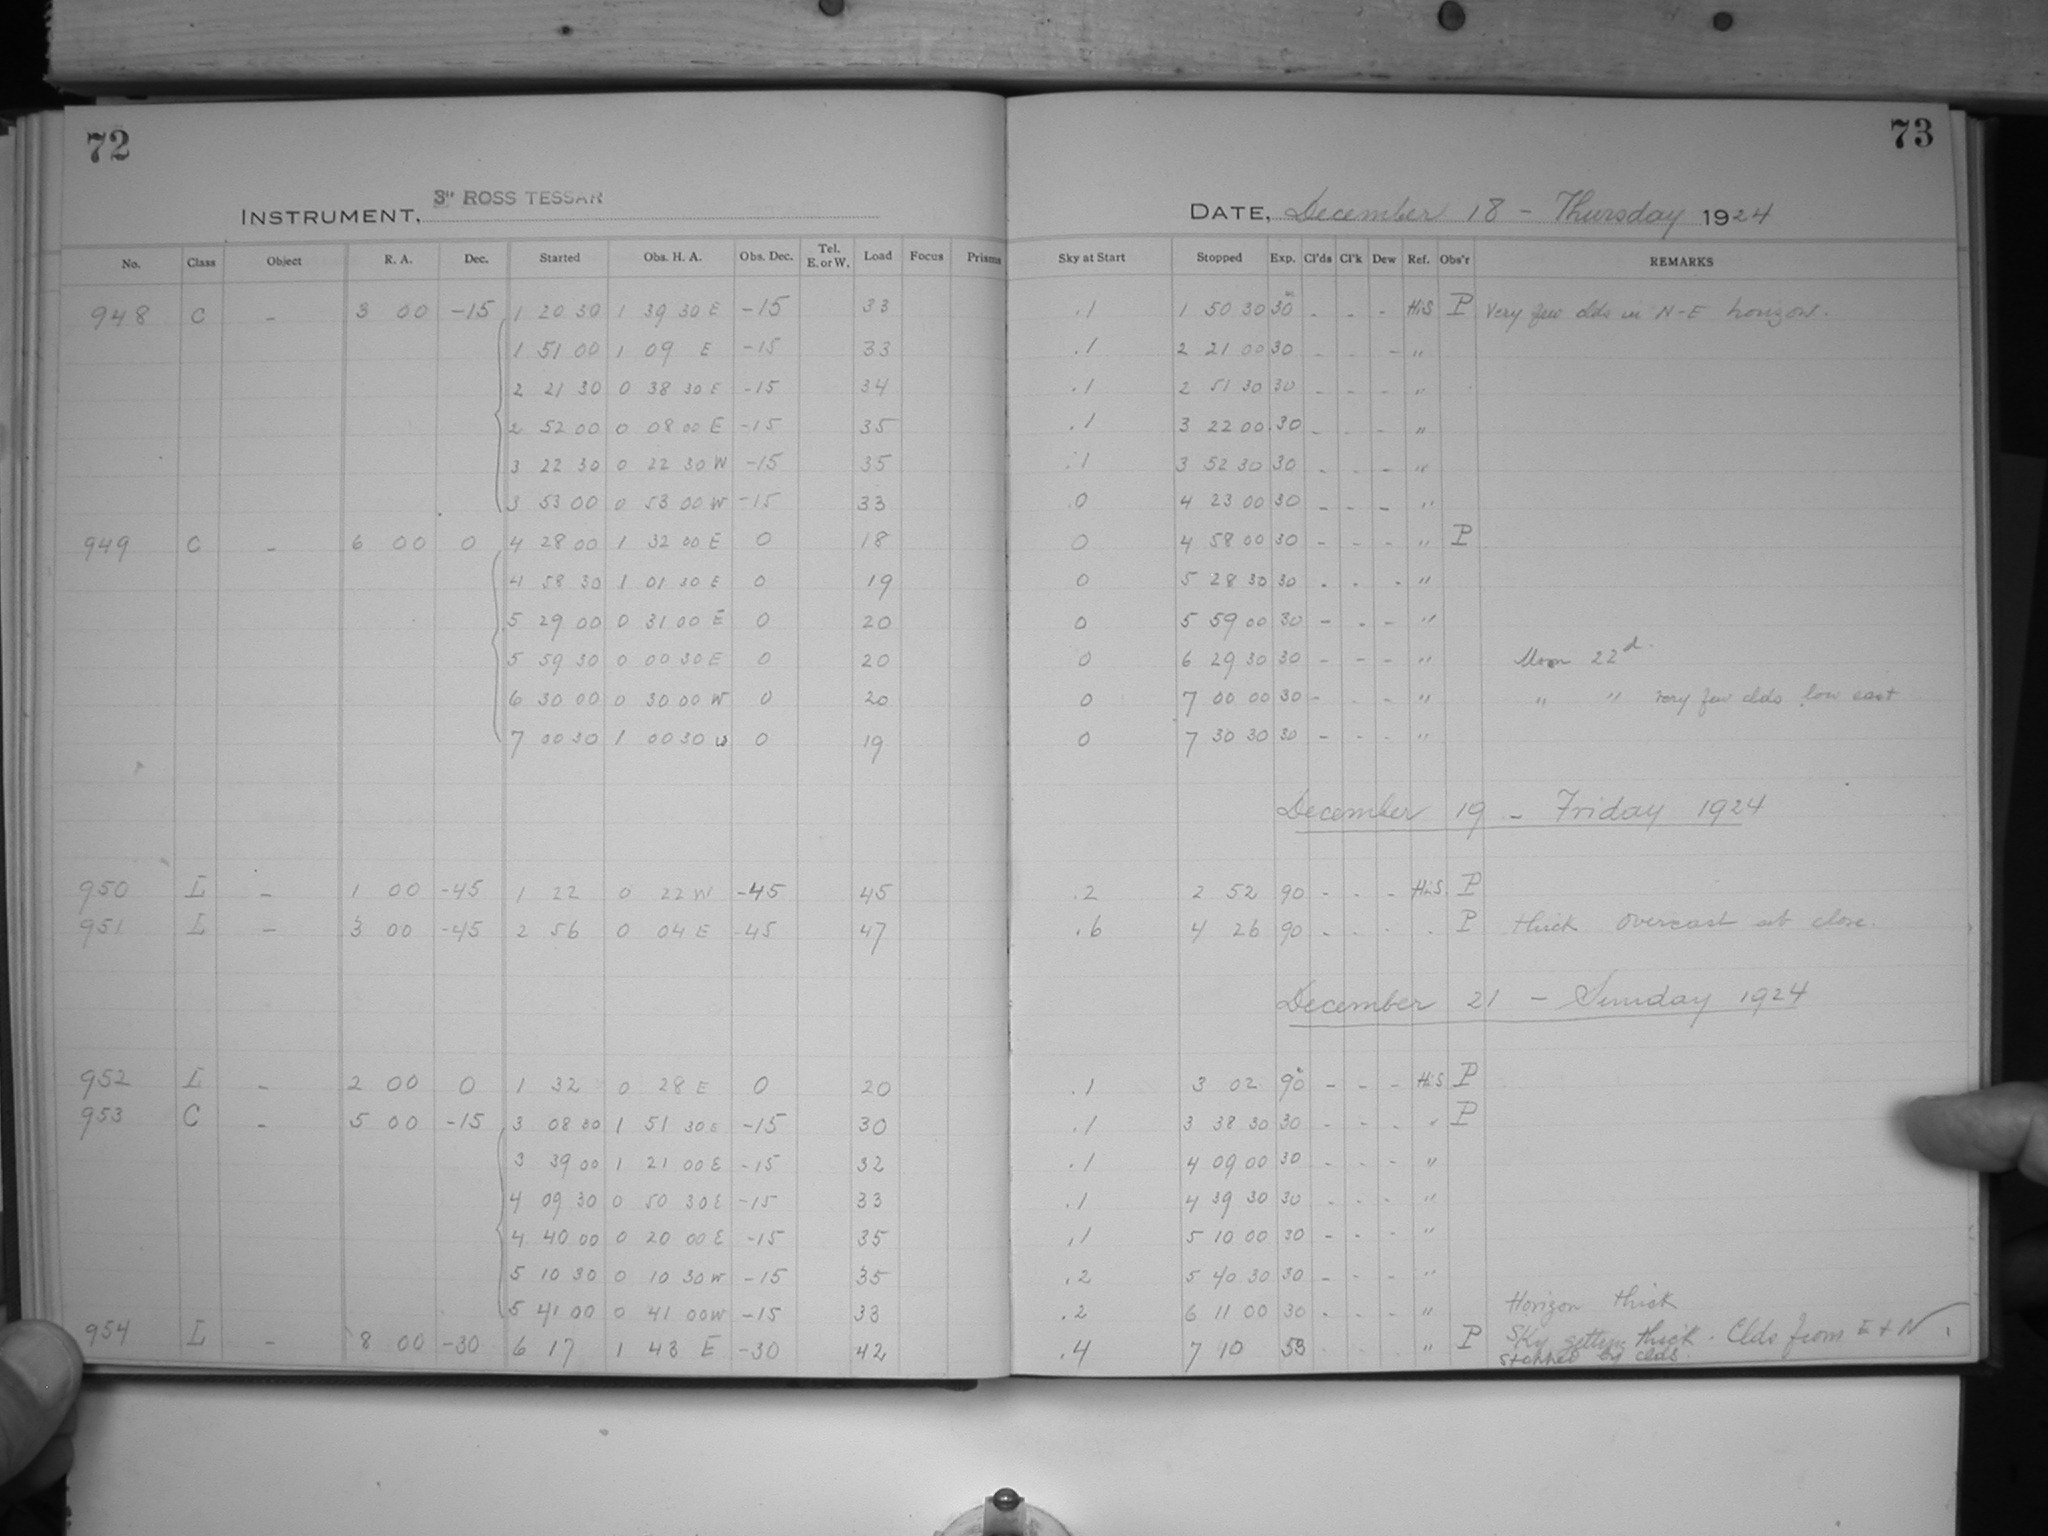 72
73
INSTRUMENT, 3" ROSS TESSAR
DATE, December 18 - Thursday 1924
No. Class Object R. A. Dec. Started Obs. H. A. Obs. Dec. Tel. E. or W. Load Focus Prisms Sky at Start Stopped Exp. Cl'ds Cl'k Dew Ref. Obs'r REMARKS
948 C - 3 00 -15 1 20 30 1 39 30 E -15 33 .1 1 50 30 30 - - - HiS P Very few clds in N-E horizon.
1 51 00 1 09 E -15 33 .1 2 21 00 30 - - - "
2 21 30 0 38 30 E -15 34 .1 2 51 30 30 - - - "
2 52 00 0 08 00 E -15 35 .1 3 22 00 30 - - - "
3 22 30 0 22 30 W -15 35 .1 3 52 30 30 - - - "
3 53 00 0 53 00 W -15 33 .0 4 23 00 30 - - - "
949 C - 6 00 0 4 28 00 1 32 00 E 0 18 0 4 58 00 30 - - - " P
4 58 30 1 01 30 E 0 19 0 5 28 30 30 - - - "
5 29 00 0 31 00 E 0 20 0 5 59 00 30 - - - "
5 59 30 0 00 30 E 0 20 0 6 29 30 30 - - - " Moon 22d.
6 30 00 0 30 00 W 0 20 0 7 00 00 30 - - - " " " very few clds low east
7 00 30 1 00 30 W 0 19 0 7 30 30 30 - - - "
December 19 - Friday 1924
950 I - 1 00 -45 1 22 0 22 W -45 45 .2 2 52 90 - - - HiS. P
951 I - 3 00 -45 2 56 0 04 E -45 47 .6 4 26 90 - - - - P thick overcast at close.
December 21 - Sunday 1924
952 I - 2 00 0 1 32 0 28 E 0 20 .1 3 02 90 - - - HiS P
953 C - 5 00 -15 3 08 30 1 51 30 E -15 30 .1 3 38 30 30 - - - " P
3 39 00 1 21 00 E -15 32 .1 4 09 00 30 - - - "
4 09 30 0 50 30 E -15 33 .1 4 39 30 30 - - - "
4 40 00 0 20 00 E -15 35 .1 5 10 00 30 - - - "
5 10 30 0 10 30 W -15 35 .2 5 40 30 30 - - - "
5 41 00 0 41 00 W -15 33 .2 6 11 00 30 - - - " Horizon thick
954 I - 8 00 -30 6 17 1 43 E -30 42 .4 7 10 53 - - - " P Sky getting thick. Clds from E + N
stopped by clds.